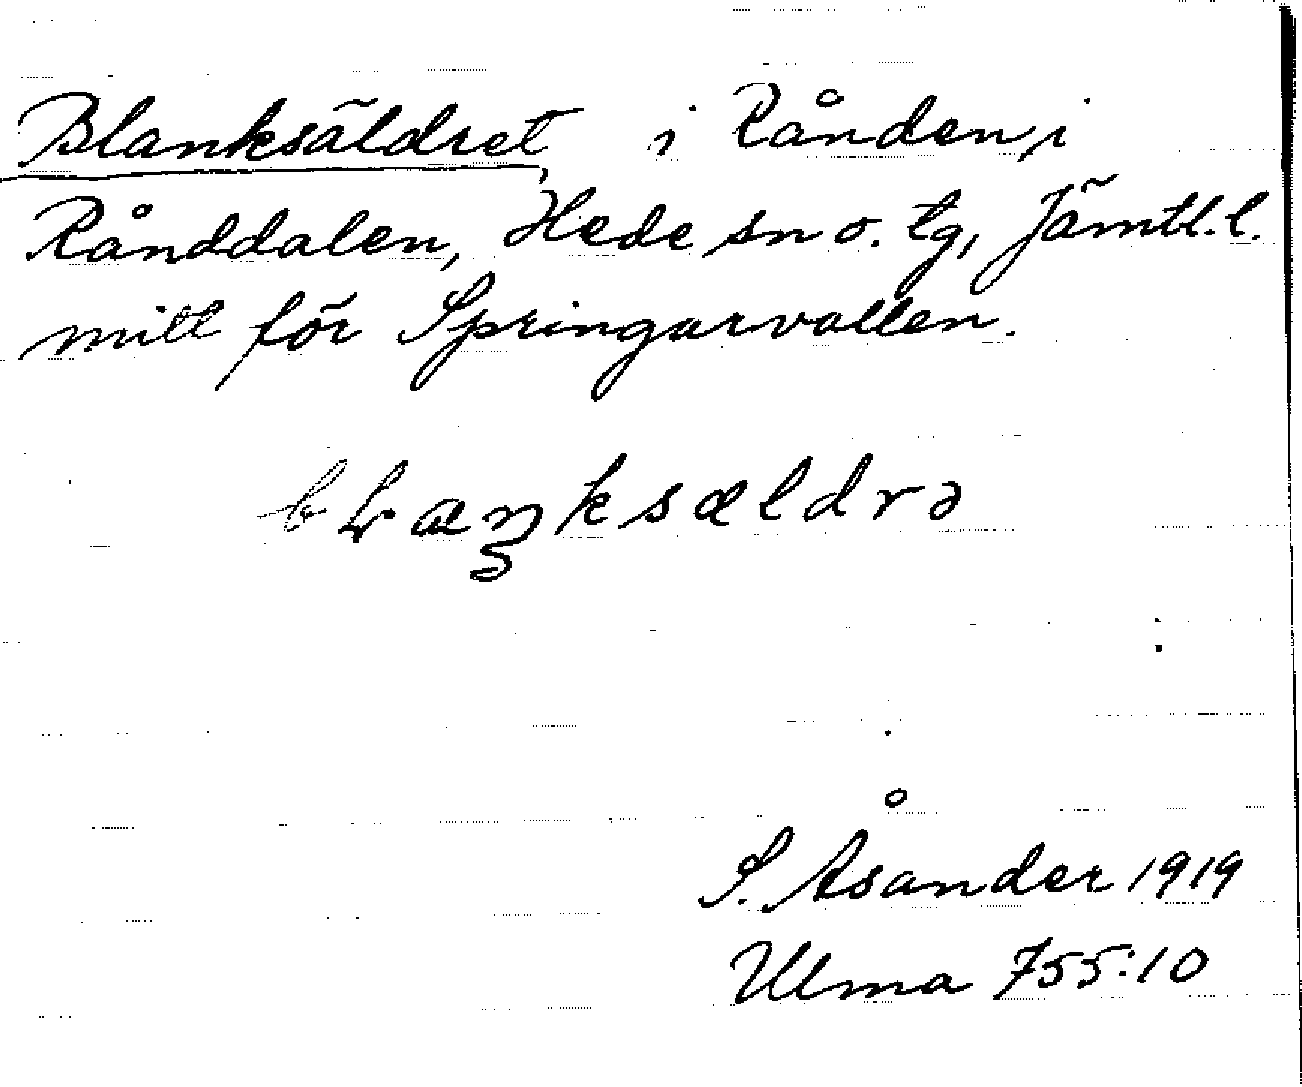 Blanksäldret, i Rånden, i
Rånddalen, Hede sn o. tg, Jämtl. l.
mitt för Springarvallen.
bꞭaŋksældrə
S. Åsander 1919
Ulma 755:10